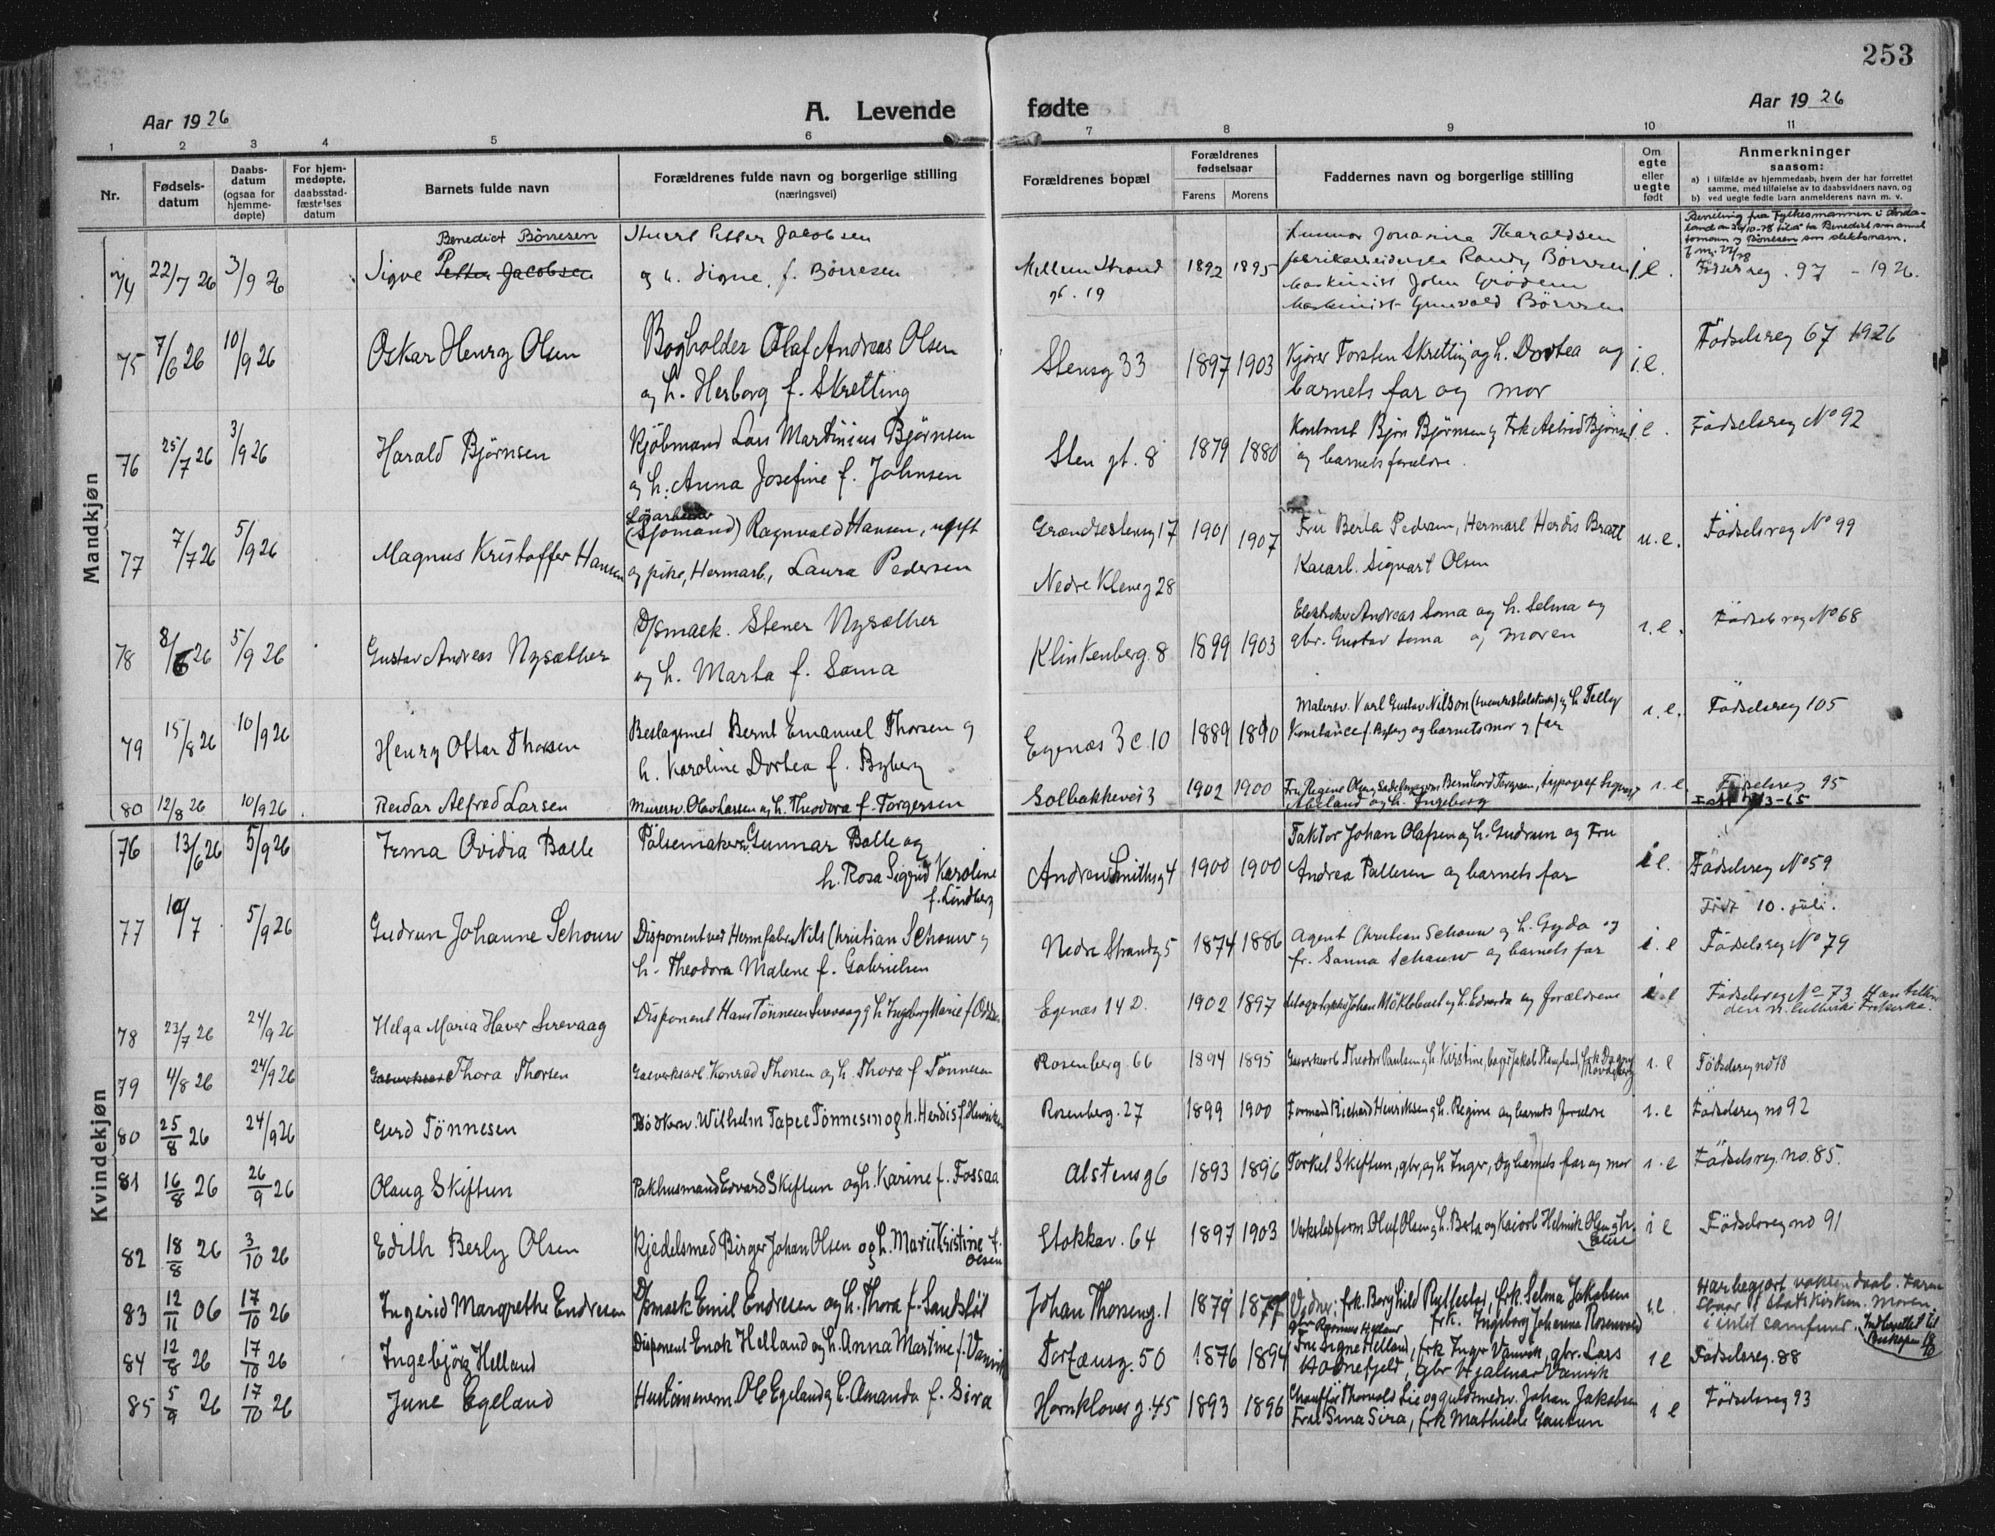 253
Aar 1926
A. Levende fødte
Aar 1926
1 2 3 4 5 6 7 8 9 10 11
Nr.
Fødsels-
datum
Daabs-
datum
(ogsaa for
hjemme-
døpte)
For hjem-
medøpte,
daabsstad-
fæstelses
datum
Barnets fulde navn
Forældrenes fulde navn og borgerlige stilling
(næringsvei)
Forældrenes bopæl
Forældrenes
fødselsaar
Farens Morens
Faddernes navn og borgerlige stilling
Om
egte
eller
uegte
født
Anmerkninger
saasom:
a) i tilfælde av hjemmedaab, hvem der har forrettet
samme, med tilføielse av to daabsvidners navn, og
b) ved uegte fødte barn anmelderens navn m. v.
Mandkjøn
74 22/7 26 3/9 26
Benedict Børresen
Sigve Petter Jacobsen
Petter Jacobsen
og h. Signe, f. Børresen
Mellem Strand
gt. 19
1892 1895
Johanne Haraldsen
Randy Børresen
Maskinist John Grødem
Maskinist Gunvald Børresen
i.e.
Fødselsreg. 97 - 1926.
75 7/6 26 10/9 26
Oskar Henry Olsen
Bogholder Olaf Andreas Olsen
og h. Herborg f. Skretting
Stensg 33
1897 1903
Kjører Torsten Skretting og h. Dortea og
barnets far og mor
i.e.
Fødselsreg 67 1926
76 25/7 26 3/9 26
Harald Bjørnsen
Kjøbmand Lars Martinius Bjørnsen
og h. Anna Josefine f. Johnsen
Sten gt. 8
1879 1880
Kontorist Bjørn Bjørnsen og Frk Astrid Bjørnsen
og barnets forældre.
i.e.
Fødselsreg No 92
77 7/7 26 5/9 26
Magnus Kristoffer Hansen
Løsarbeider
(Sjømand) Ragnvald Hansen, ugift
og pike, Hermarb., Laura Pedersen
Grandestensg 17
Nedre Kleivg 28
1901 1907
Fru Berta Pedersen, Hermarb Herdis Bratt
Kaiarb. Sigvart Olsen
u.e.
Fødselsreg No 99
78 8/6 26 5/9 26
Gustav Andreas Nysæther
D/smask. Stener Nysæther
og h. Marta f. Soma
Klinkenberg. 8
1899 1903
Andreas Soma og h. Selma og
gbr. Gustav Soma og moren
i.e.
Fødselsreg No 68
79 15/8 26 10/9 26
Henry Ottar Thorsen
Beslagsmed Bernt Emanuel Thorsen og
h. Karoline Dortea f. Byberg
Egenæs 3c. 10
1889 1890
Malersv. Karl Gustav Nilson og h. Telly
Konstance f. Byberg og barnets mor og far
i.e.
Fødselsreg 105
80 12/8 26 10/9 26
Reidar Alfred Larsen
Murersv. Olav Larsen og h. Theodora f. Torgersen
Solbakkevei 3
1902 1900
Fru Regine Olsen, Bernhard Torgersen, typograf Sigvart
Abeland og h. Ingeborg
i.e.
Fødselsreg 95
Kvindekjøn
76 13/6 26 5/9 26
Irma Ovidia Balle
Pølsemaker Gunnar Balle og
h. Rosa Sigrid Karoline
f. Lindberg
Andrew Smithsg 4
1900 1900
Faktor Johan Olafsen og h. Gudrun og Fru
Andrea Pallesen og barnets far
i e.
Fødselsreg No 59
77 10/7 5/9 26
Gudrun Johanne Schouw
Disponent ved Hermfabr. Nils Christian Schouw og
h. Theodora Malene f. Gabrielsen
Nedre Strandg 5
1874 1886
Agent Christian Schouw og h. Gyda og
fr. Sanna Schouw og barnets far
i. e
Født 10. juli.
Fødselsreg No 79
78 23/7 26 24/9 26
Helga Maria Haver Sirevaag
Disponent Hans Tønnesen Sirevaag og h. Ingeborg Marie
Egenæs 14 D.
1902 1897
Johan Møklebust og h. Edvarda og Forældrene
i e
Fødselsreg No 73
79 4/8 26 24/9 26
Thora Thorsen
Gasverksarb. Konrad Thorsen og h. Thora f Tønnesen
Rosenberg. 66
1894 1895
Gasverksarb Theodor Paulsen og h. Kirstine, bager Jakob
i. e
Fødselsreg no 78
80 25/8 26 24/9 26
Gerd Tønnesen
Bødkersv. Wilhelm Tapee Tønnesen og h. Herdis f. Henriksen
Rosenberg. 27
1899 1900
Formand Richard Henriksen og h. Regine og barnets forældre
i. e
Fødselsreg no 92
81 16/8 26 26/9 26
Olaug Skiftun
Pakhusmand Edvard Skiftun og h. Karine f. Fossaa
Alstensg 6
1893 1896
Torkel Skiftun, gbr, og h Inger, og barnets far og mor
i. e
Fødselsreg. no. 85.
82 18/8 26 3/10 26
Edith Berly Olsen
Kjedelsmed Birger Johan Olsen og h. Marie Kristine f.
Olsen
Stokkav. 64
1897 1903
Verkstedform. Oluf Olsen og h. Berta og Kaiarb Helmik Olsen og h.
i e
Fødselsreg no 91
83 12/11 06 17/10 26
Ingerid Margrethe Endresen
D/smask Emil Endresen og h. Thora f. Sandsløt
Johan Thorseng. 1
1879 1877
Vidner: frk. Borghild Rettestad, frk. Selma Jakobsen
frk. Ingeborg Johanne Rosenvold
i.e
Har begjært voksendaab. Faren
staar i Statskirken. Moren
i intet samfund.
Indberettet til
Biskopen
84 12/8 26 17/10 26
Ingebjørg Helland
Disponent Enok Helland og h. Anna Martine f. Vanvik
Torfæusg. 50
1876 1894
Fru Signe Helland, frk Inger Vanvik, gbr. Lars
Hodnefjeld, gbr Hjalmar Vanvik
i e
Fødselsreg. 88
85 5/9 26 17/10 26
June Egeland
Hustømmerm. Ole Egeland og h. Amanda f. Sira
Hornklovesg. 45
1893 1896
Chauffør Thorvald Lie og guldsmedsv. Johan Jakobsen
Fru Sina Sira, frk Mathilde Gautun
i e
Fødselsreg 93